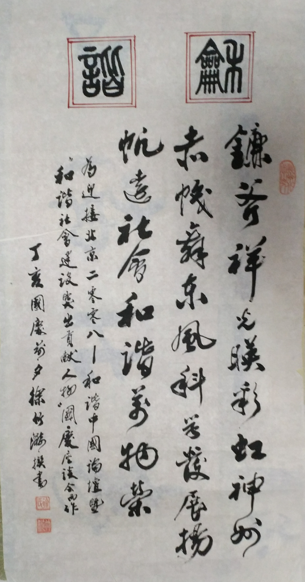 龢諧
鐮斧祥光暎彩虹神州
赤幟舞東風科学發展揚
帆遠社會和諧萬物榮
為迎接北京二零零八—和諧中國論壇暨
“和諧社會建設突出貢獻人物”國慶座談會而作
丁亥國慶前夕徐竹撰書